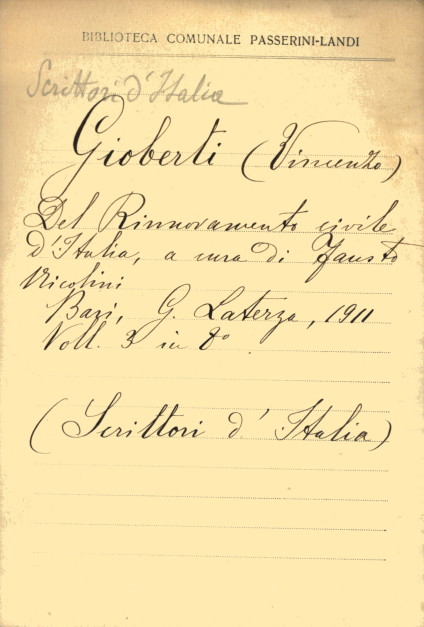 BIBLIOTECA COMUNALE PASSERINI-LANDI
Scrittori d'Italia
Gioberti (Vincenzo)
Del Rinnovamento civile
d'Italia, a cura di Fausto
Nicolini
Bari, G. Laterza, 1911
Voll. 3 in 8°
(Scrittori d'Italia)